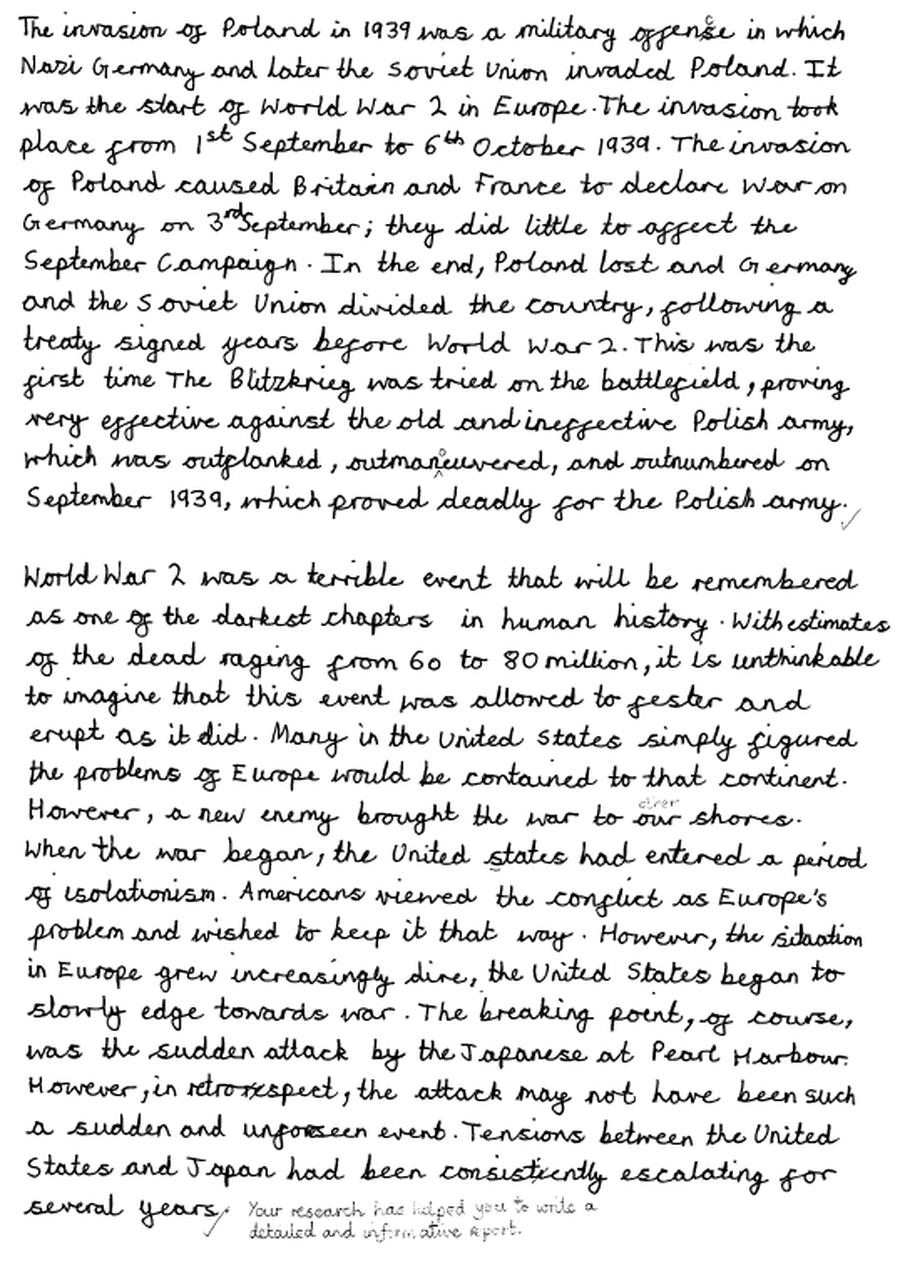 The invasion of Poland in 1939 was a military offence in which
Nazi Germany and later the Soviet Union invaded Poland. It
was the start of World War 2 in Europe. The invasion took
place from 1st September to 6th October 1939. The invasion
of Poland caused Britain and France to declare War on
Germany on 3rd September; they did little to affect the
September Campaign. In the end, Poland lost and Germany
and the Soviet Union divided the country, following a
treaty signed years before World War 2. This was the
first time The Blitzkrieg was tried on the battlefield, proving
very effective against the old and ineffective Polish army,
which was outflanked, outmanoeuvered, and outnumbered on
September 1939, which proved deadly for the Polish army.

World War 2 was a terrible event that will be remembered
as one of the darkest chapters in human history. With estimates
of the dead raging from 60 to 80 million, it is unthinkable
to imagine that this event was allowed to fester and
erupt as it did. Many in the United States simply figured
the problems of Europe would be contained to that continent.
other
However, a new enemy brought the war to our shores.
When the war began, the United states had entered a period
of isolationism. Americans viewed the conflict as Europe's
problem and wished to keep it that way. However, the situation
in Europe grew increasingly dire, the United States began to
slowly edge towards war. The breaking point, of course,
was the sudden attack by the Japanese at Pearl Harbour.
However, in retrospect, the attack may not have been such
a sudden and unforeseen event. Tensions between the United
States and Japan had been consistently escalating for
several years. Your research has helped you to write a
detailed and informative report.